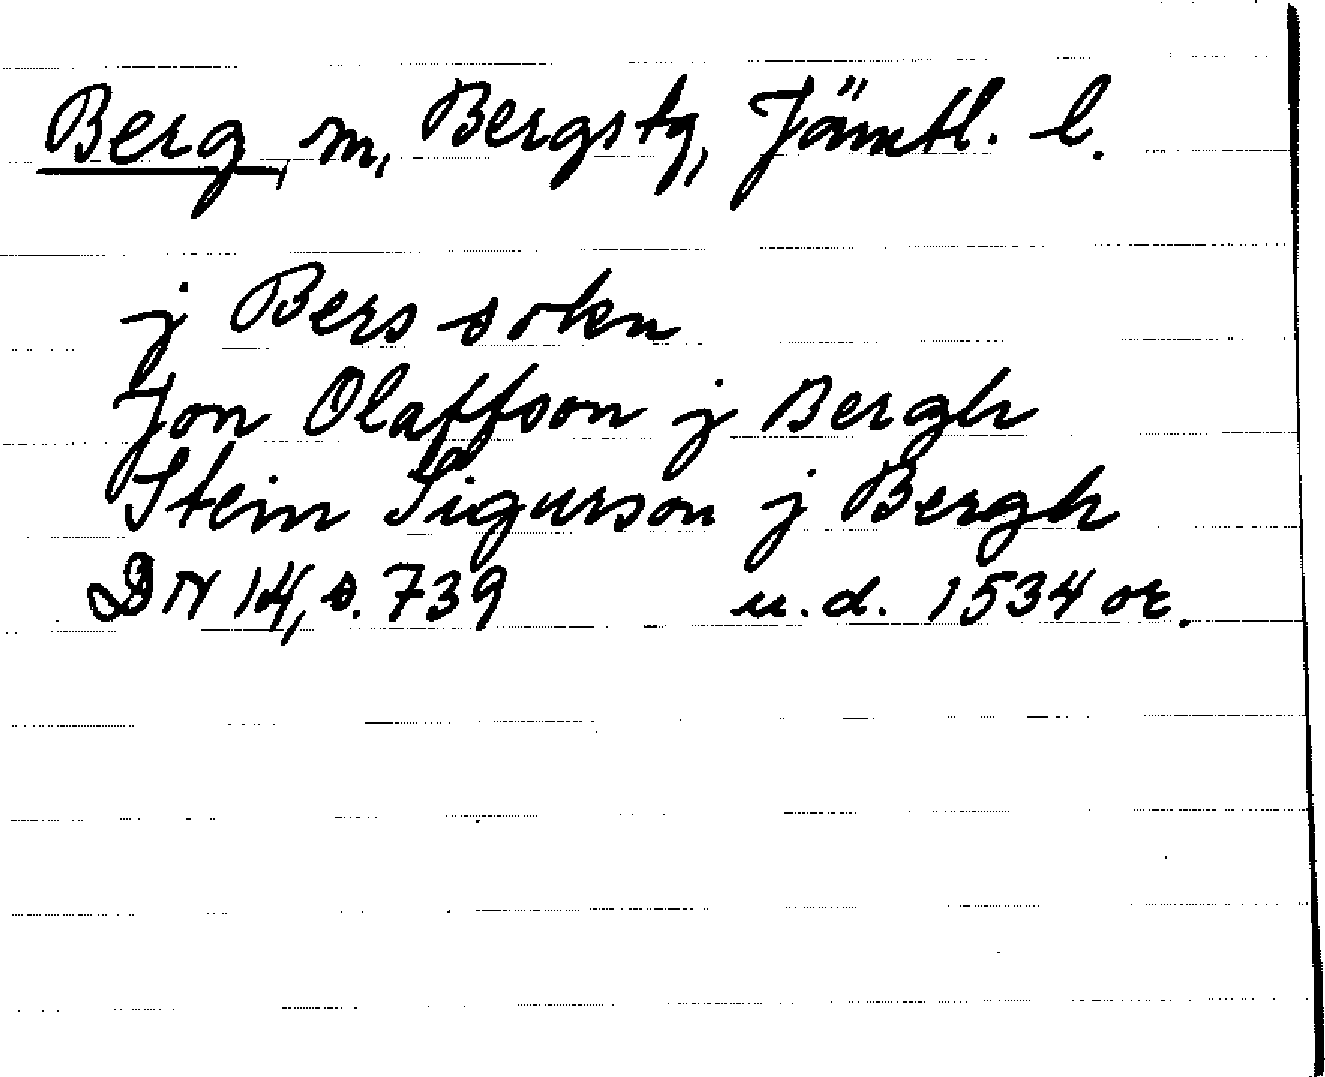 Berg, sn, Bergs tg, Jämtl. l.
j Bers sokn
Jon Olaffson j Bergh
Stein Sigurson j Bergh
DN 14, s. 739 u.d. 1534 or.